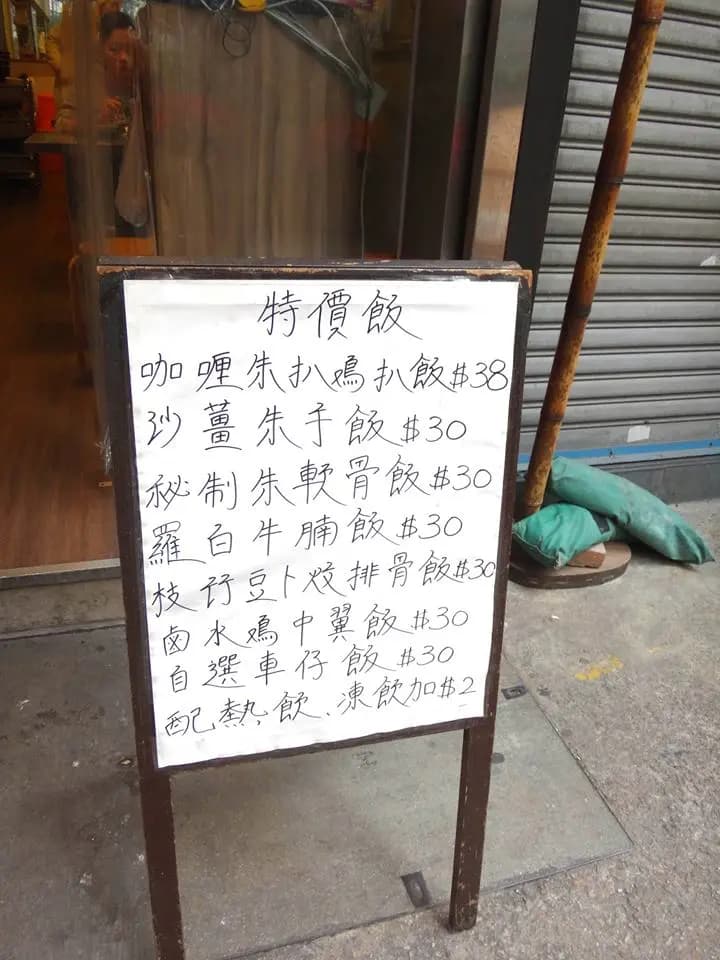 特價飯
咖喱朱扒鳮扒飯$38
沙薑朱手飯$30
秘制朱軟骨飯$30
羅白牛腩飯$30
枝竹豆卜炆排骨飯$30
鹵水鳮中翼飯$30
自選車仔飯$30
配熱飲、凍飲加$2